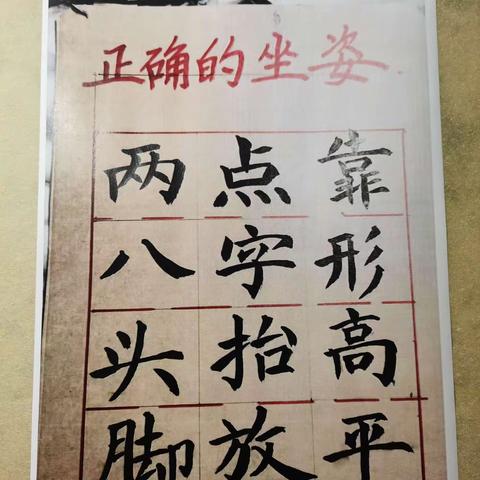 正确的坐姿
两点靠
八字形
头抬高
脚放平